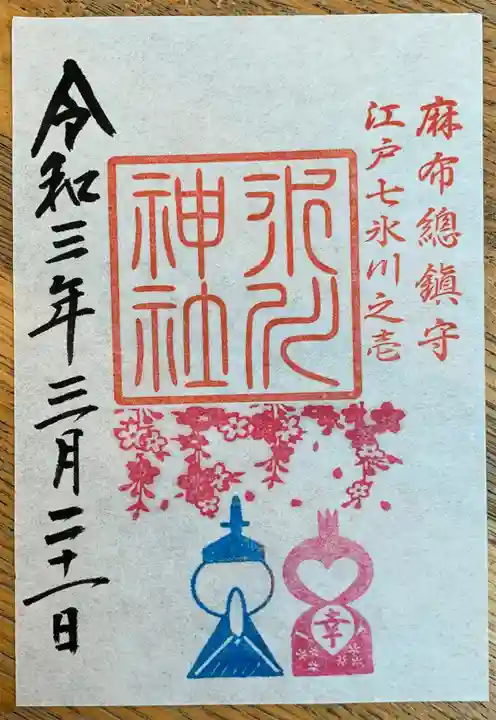 麻布總鎮守
江戸七氷川之壱
氷川
神社
幸
令和三年三月二十一日